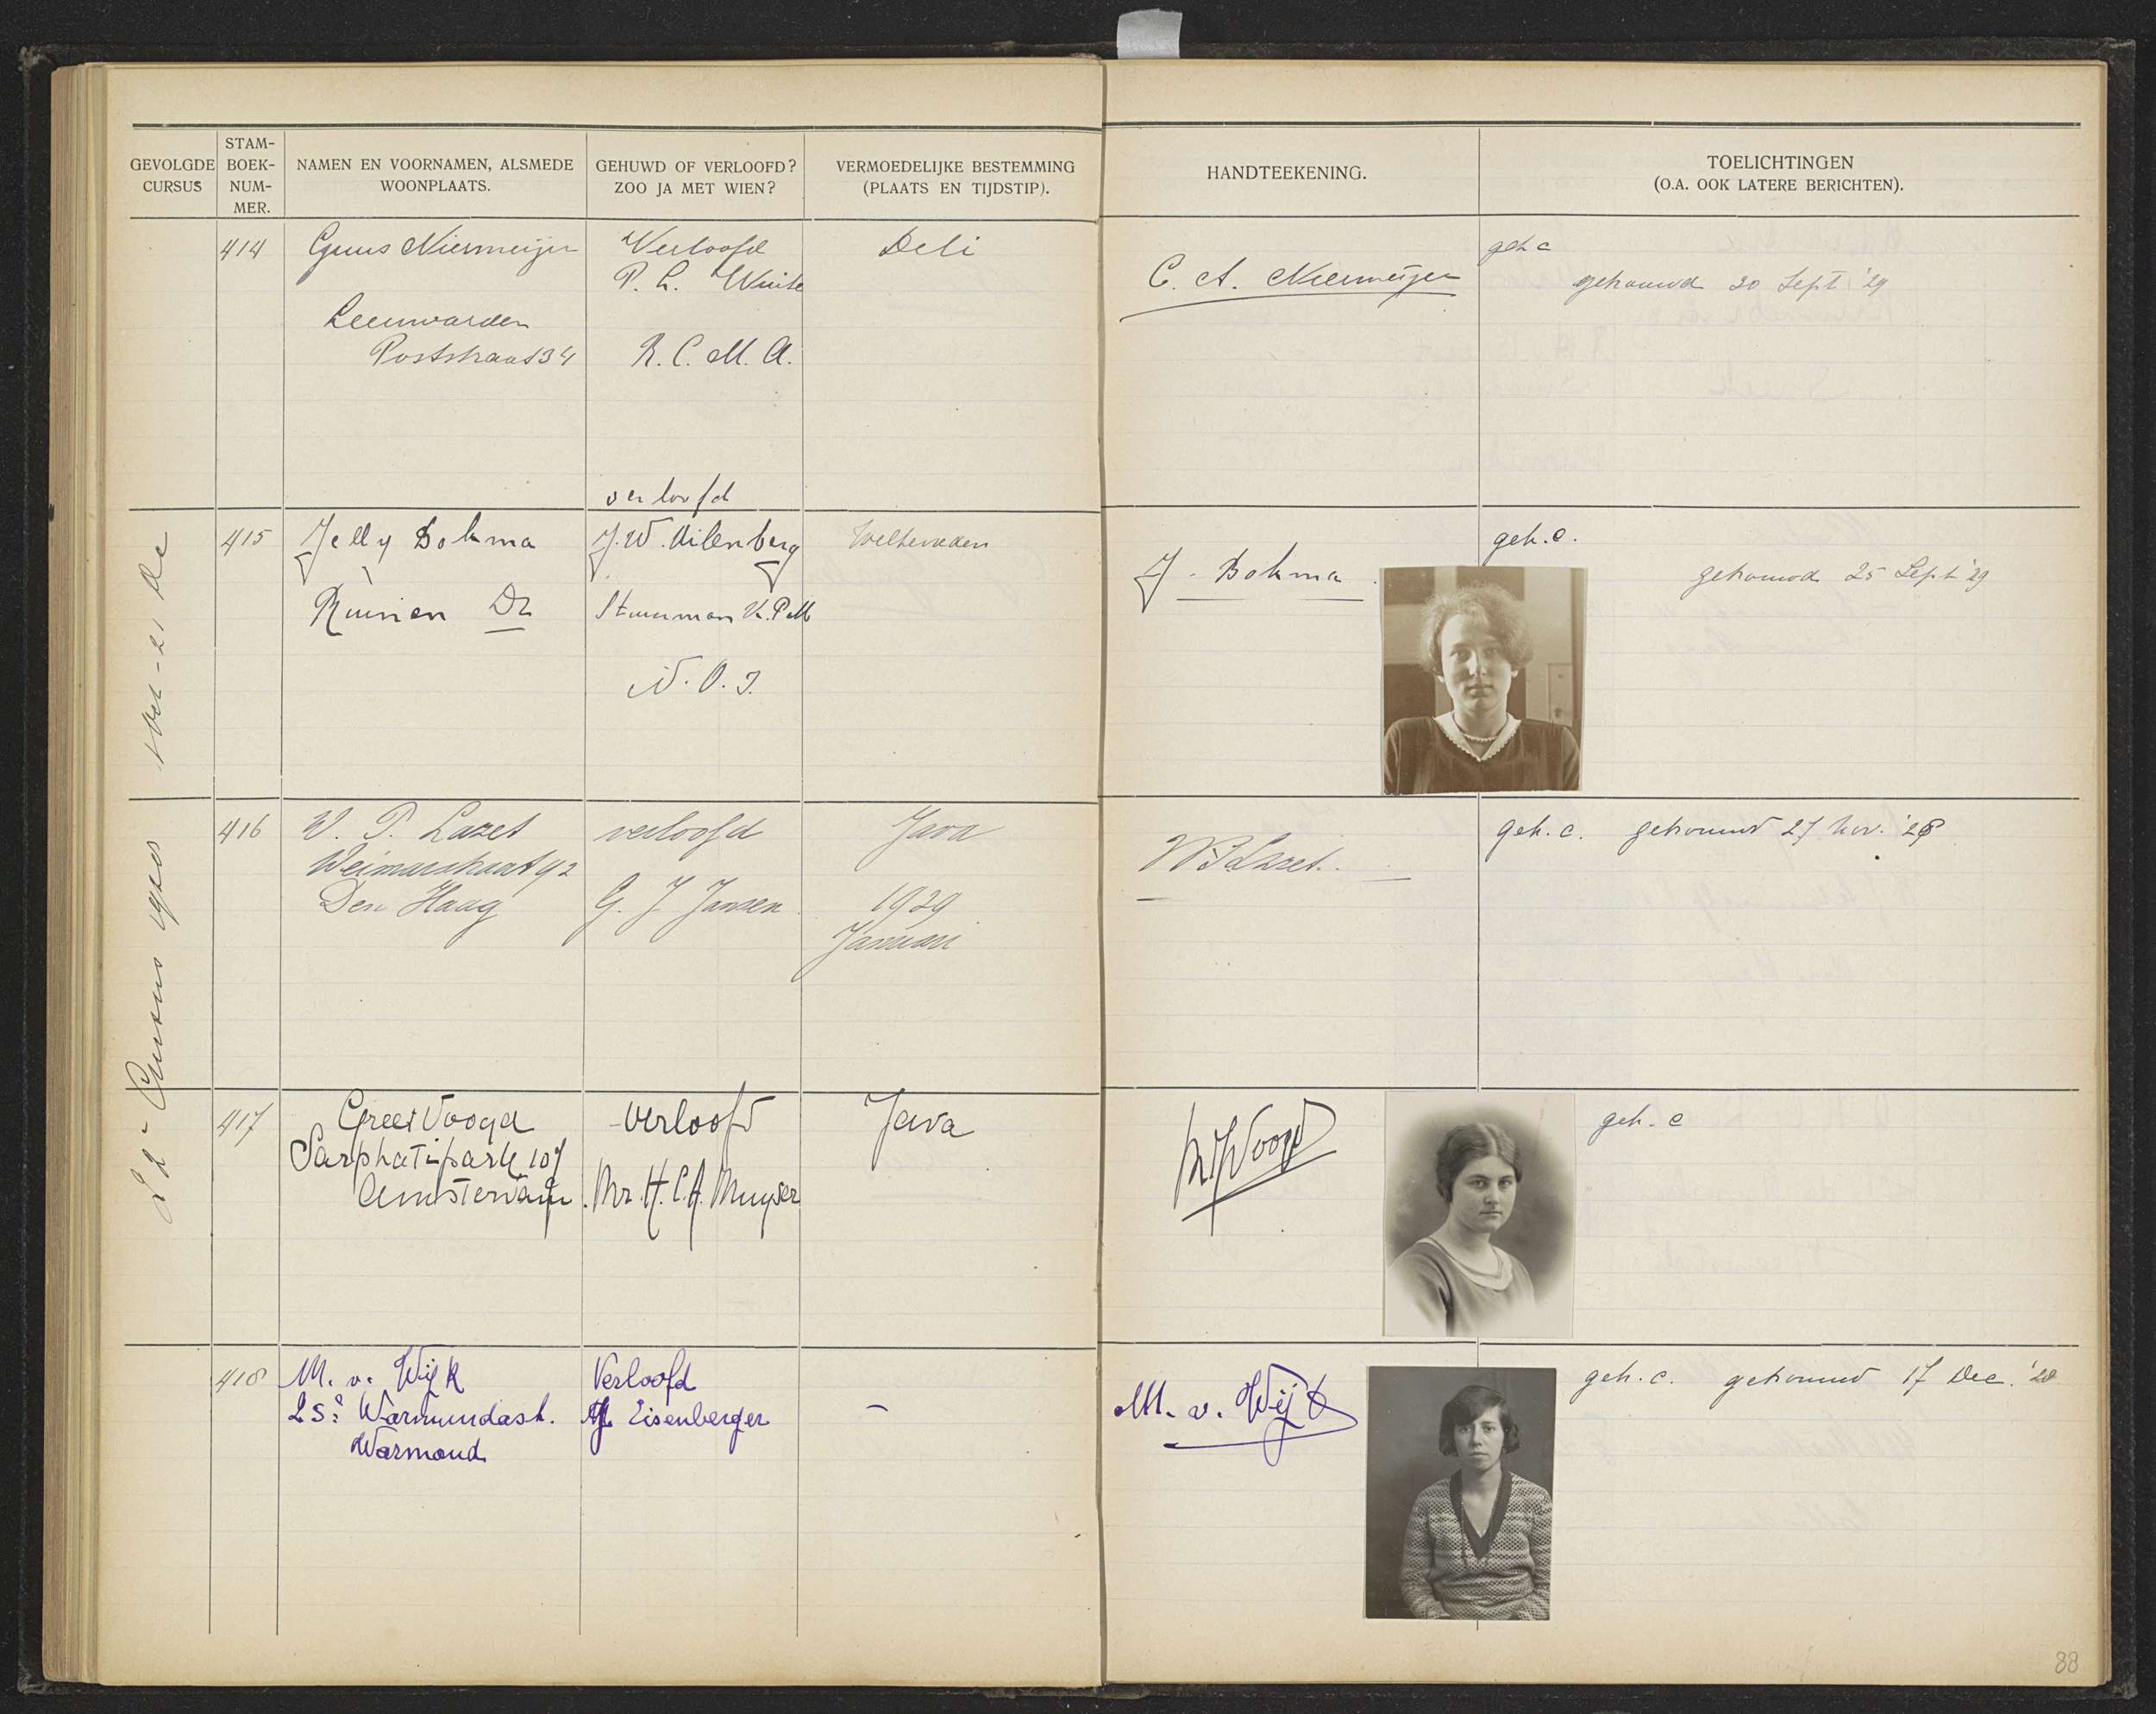 GEVOLGDE CURSUS
STAM-BOEK-NUM-MER.
NAMEN EN VOORNAMEN, ALSMEDE WOONPLAATS.
GEHUWD OF VERLOOFD? ZOO JA MET WIEN?
VERMOEDELIJKE BESTEMMING (PLAATS EN TIJDSTIP).
HANDTEEKENING.
TOELICHTINGEN (O.A. OOK LATERE BERICHTEN).
22e Cursus
414
Guus Niermeijer
Leeuwarden
Poststraat 34
Verloofd
P. L.
R. C. M. A.
Deli
C. A. Niermeijer
geh c
getrouwd 20 Sept '29
415
Jelly Bokma
Ruinen Dr
verloofd
J. W. Uilenberg
Stuurman K.P.M
N. O. I.
Weltevreden
J. Bokma
geh. c.
getrouwd 25 Sept '29
416
W. P. Lazet
Weimarstraat 92
Den Haag
verloofd
G. J. Jansen
Java
1929
Januari
WP Lazet.
geh. c. getrouwd 27 Nov. '28
417
Greet Voogd
Sarphatipark 107
Amsterdam.
verloofd
Mr. H. C. A. Muyser
Java
Voogd
geh. c
418
M. v. Wijk
Warmundastr.
Warmond
Verloofd
Eisenberger
-
M. v. Wijk
geh. c. getrouwd 17 Dec. '28
88